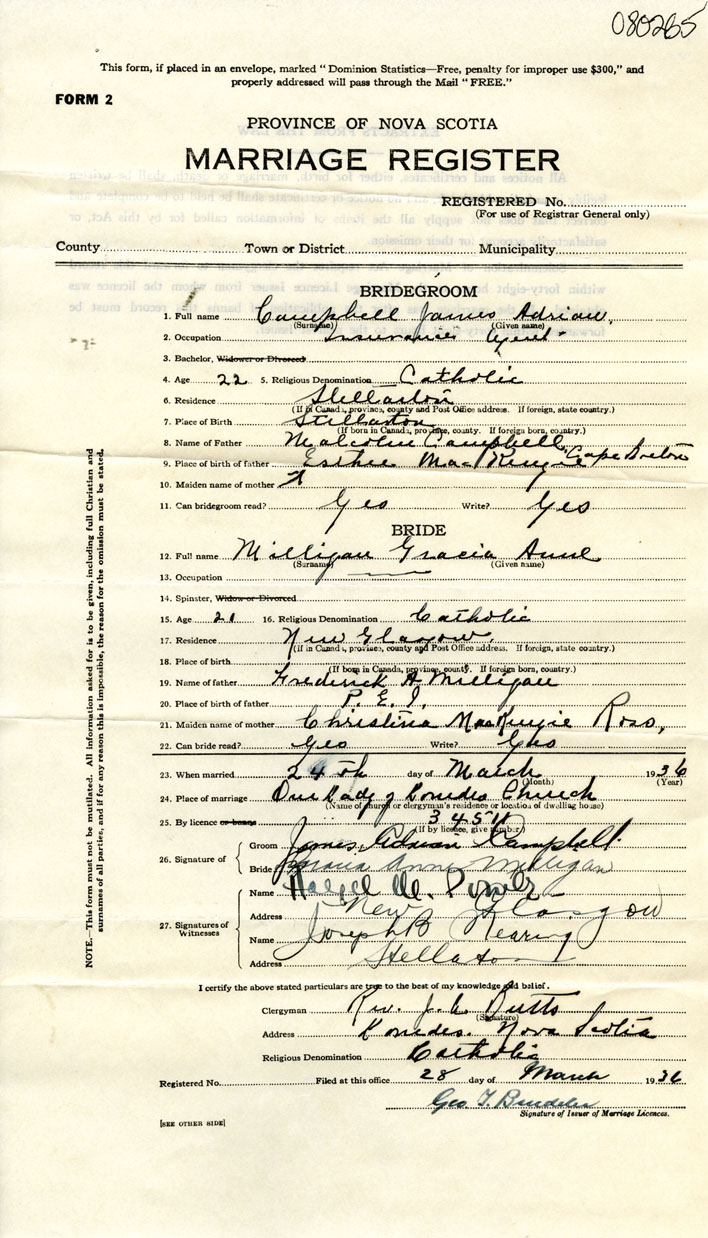 080265
This form, if placed in an envelope, marked "Dominion Statistics—Free, penalty for improper use $300," and
properly addressed will pass through the Mail "FREE."
FORM 2
PROVINCE OF NOVA SCOTIA
MARRIAGE REGISTER
REGISTERED No.
(For use of Registrar General only)
County Town or District Municipality
BRIDEGROOM
1. Full name Campbell James Adrian,
(Surname) (Given name)
2. Occupation Insurance Agent
3. Bachelor, Widower or Divorced
4. Age 22 5. Religious Denomination Catholic
6. Residence Stellarton
(If in Canada, province, county and Post Office address. If foreign, state country.)
7. Place of Birth Stellarton
(If born in Canada, province, county. If foreign born, country.)
8. Name of Father Malcolm Campbell
9. Place of birth of father Esther MacKenzie Cape Breton
10. Maiden name of mother
11. Can bridegroom read? Yes Write? Yes
BRIDE
12. Full name Milligan Gracia Anne
(Surname) (Given name)
13. Occupation
14. Spinster, Widow or Divorced
15. Age 21 16. Religious Denomination Catholic
17. Residence New Glasgow,
(If in Canada, province, county and Post Office address. If foreign, state country.)
18. Place of birth
(If born in Canada, province, county. If foreign born, country.)
19. Name of father Frederick A Milligan
20. Place of birth of father P. E. I.
21. Maiden name of mother Christina MacKenzie Ross,
22. Can bride read? Yes Write? Yes
23. When married 24th day of March 1936
(Month) (Year)
24. Place of marriage Our Lady of Lourdes Church
(Name of church or clergyman's residence or location of dwelling house)
25. By licence or banns
(If by licence, give number)
26. Signature of
Groom James Adrian Campbell
Bride Gracia Anne Milligan
27. Signatures of
Witnesses
Name Hazel M. Power
Address New Glasgow
Name Joseph B Nearing
Address Stellarton
I certify the above stated particulars are true to the best of my knowledge and belief.
Clergyman Rev. J. C. Butts
(Signature)
Address Lourdes. Nova Scotia
Religious Denomination Catholic
Registered No. Filed at this office 28 day of March 1936
Geo. T.
Signature of Issuer of Marriage Licences.
[SEE OTHER SIDE]
NOTE.—This form must not be mutilated. All information asked for is to be given, including full Christian and
surnames of all parties, and if for any reason this is impossible, the reason for the omission must be stated.